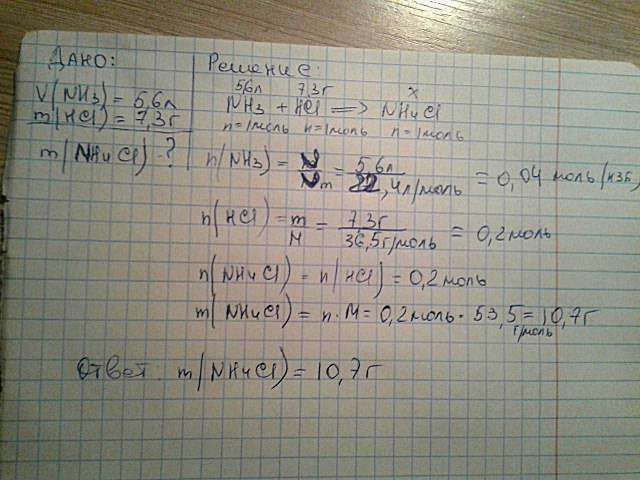 Дано:
Решение:
V(NH3) = 5,6л
m(HCl) = 7,3г
m(NH4Cl) - ?
5,6л 7,3г x
NH3 + HCl => NH4Cl
n=1моль n=1моль n=1моль
n(NH3) = V/Vm = 5,6л/22,4л/моль = 0,04 моль (изб)
n(HCl) = m/M = 7,3г/36,5г/моль = 0,2моль
n(NH4Cl) = n(HCl) = 0,2моль
m(NH4Cl) = n·M = 0,2моль · 53,5 = 10,7г
г/моль
Ответ: m(NH4Cl) = 10,7г